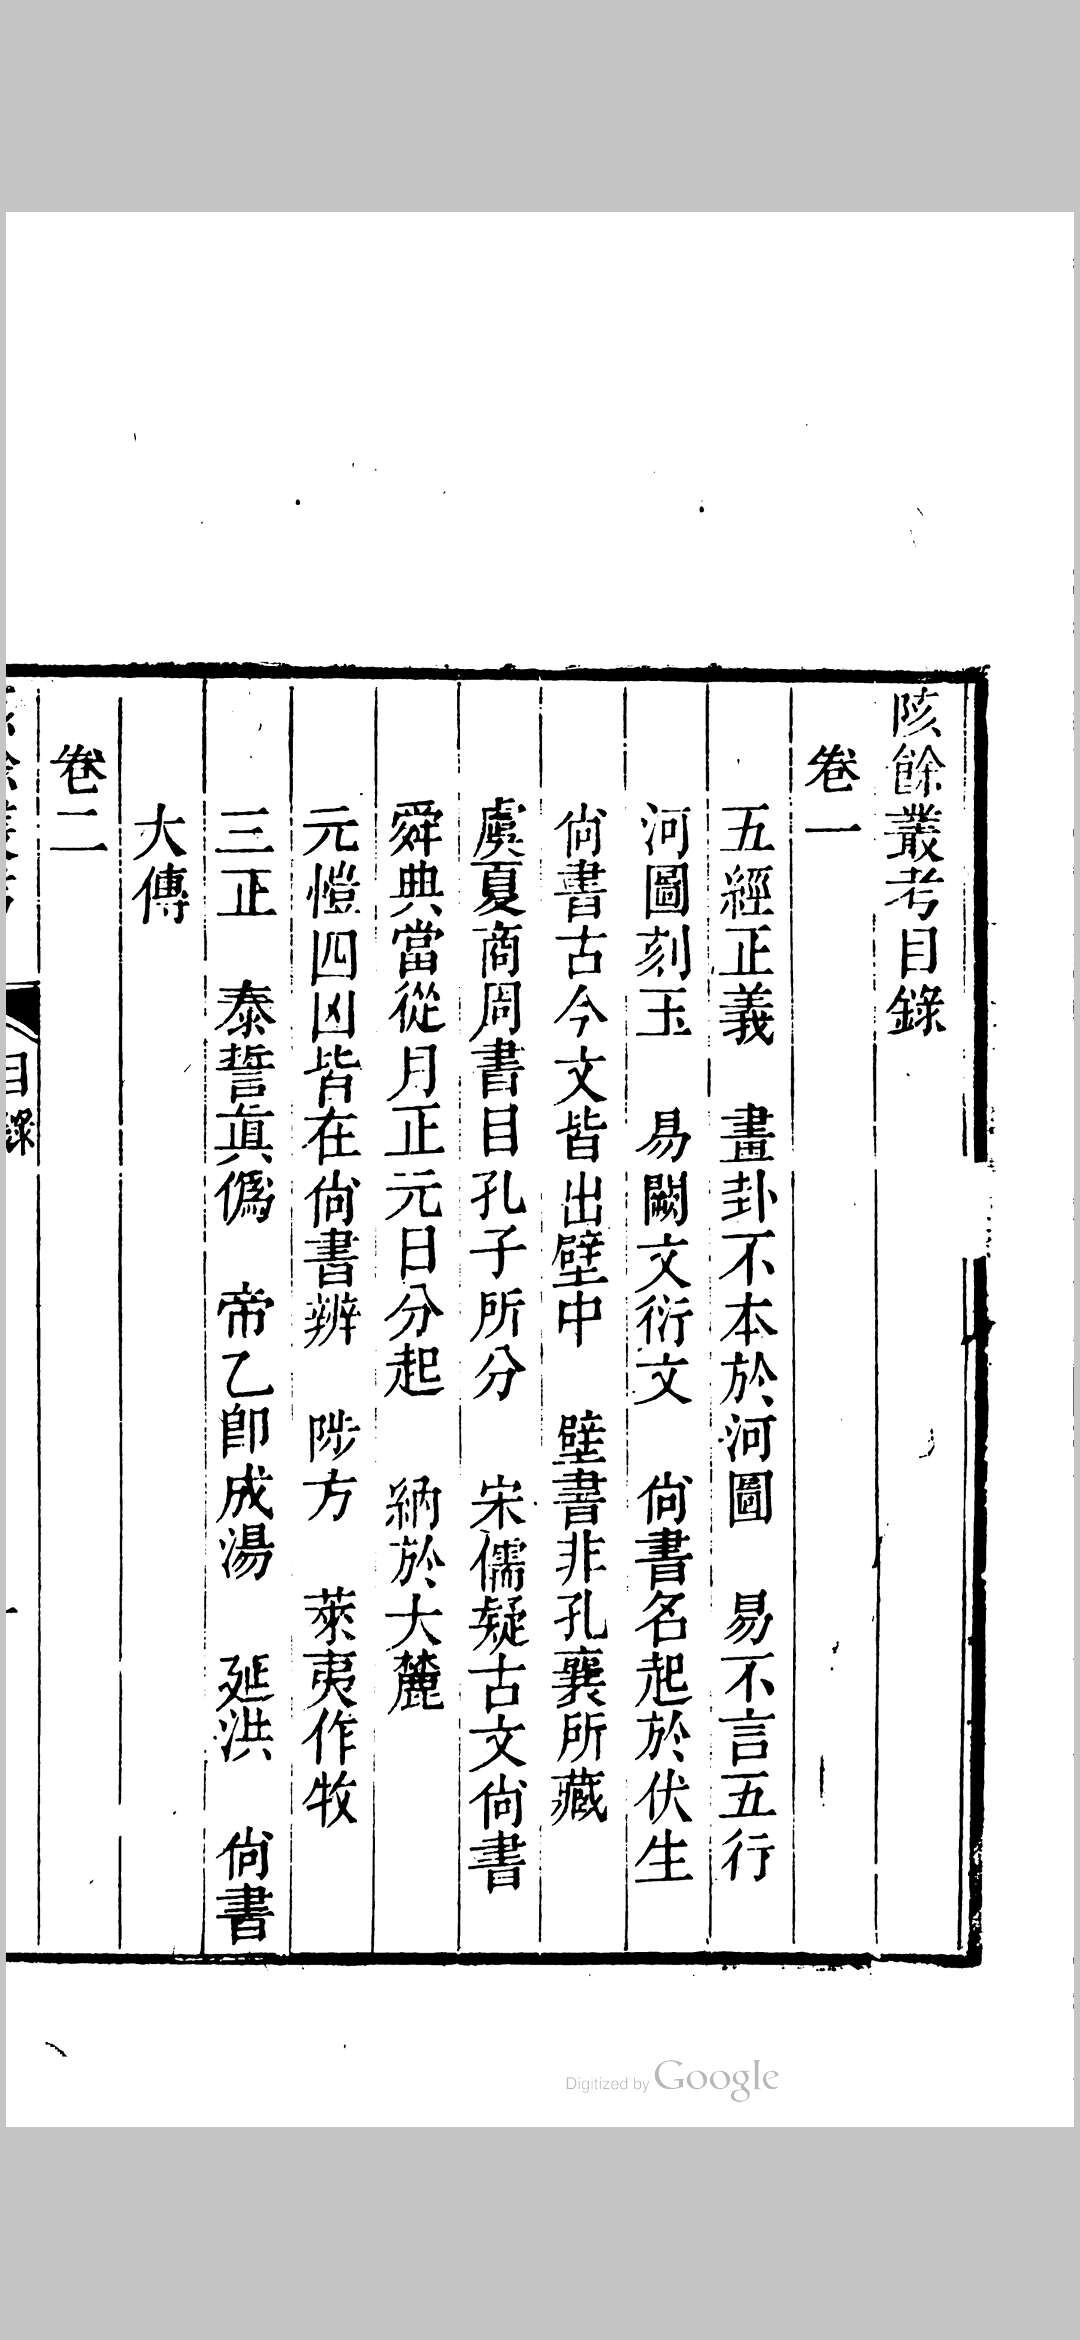 陔餘叢考目錄
卷一
五經正義　畫卦不本於河圖　易不言五行
河圖刻玉　易闕文衍文　尙書名起於伏生
尙書古今文皆出壁中　壁書非孔襄所藏
虞夏商周書目孔子所分　宋儒疑古文尙書
舜典當從月正元日分起　納於大麓
元愷四凶皆在尙書辨　陟方　萊夷作牧
三正　泰誓眞僞　帝乙卽成湯　延洪　尙書
大傳
卷二
目錄
一
Digitized by Google